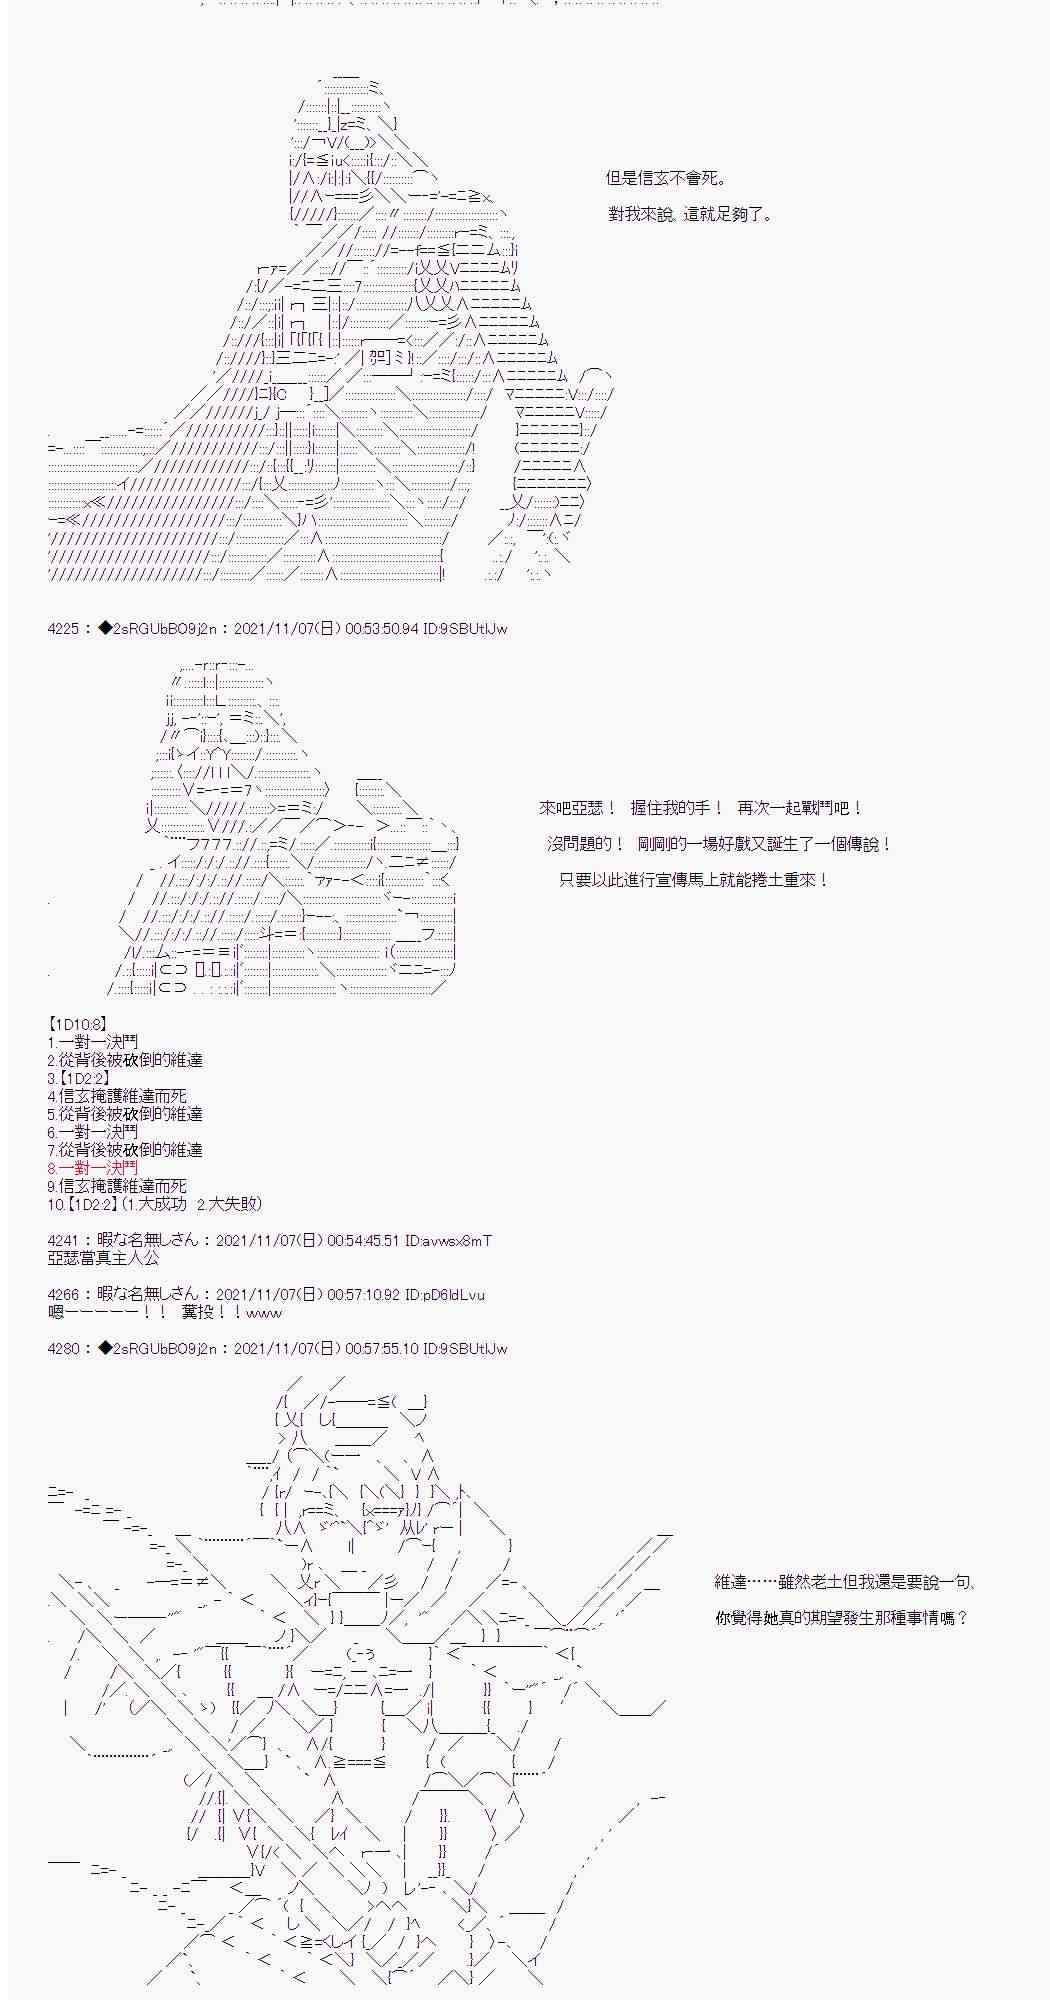 但是信玄不會死。
對我來說，這就足夠了。
4225 : ◆2sRGUbBO9j2n : 2021/11/07(日) 00:53:50.94 ID:9SBUtlJw
來吧亞瑟！ 握住我的手！ 再次一起戰鬥吧！
沒問題的！ 剛剛的一場好戲又誕生了一個傳說！
只要以此進行宣傳馬上就能捲土重來！
【1D10:8】
1.一對一決鬥
2.從背後被砍倒的維達
3.【1D2:2】
4.信玄掩護維達而死
5.從背後被砍倒的維達
6.一對一決鬥
7.從背後被砍倒的維達
8.一對一決鬥
9.信玄掩護維達而死
10.【1D2:2】（1.大成功 2.大失敗）
4241 : 暇な名無しさん : 2021/11/07(日) 00:54:45.51 ID:avwsx8mT
亞瑟當真主人公
4266 : 暇な名無しさん : 2021/11/07(日) 00:57:10.92 ID:pD6ldLvu
嗯ーーーーー！！ 糞投！！www
4280 : ◆2sRGUbBO9j2n : 2021/11/07(日) 00:57:55.10 ID:9SBUtlJw
維達……雖然老土但我還是要說一句、
你覺得她真的期望發生那種事情嗎？